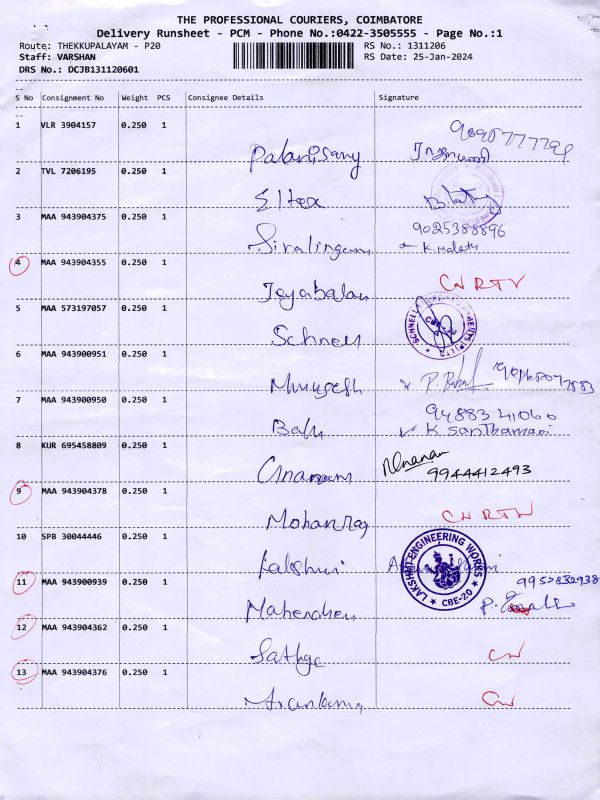 THE PROFESSIONAL COURIERS, COIMBATORE
Delivery Runsheet - PCM - Phone No.:0422-3505555 - Page No.:1
Route: THEKKUPALAYAM - P20 RS No.: 1311206
Staff: VARSHAN RS Date: 25-Jan-2024
DRS No.: DCJB131120601
S No Consignment No Weight PCS Consignee Details Signature
1 VLR 3904157 0.250 1
Palanisamy
2 TVL 7206195 0.250 1
Eltex
3 MAA 943904375 0.250 1 9025388896
Sivalingam K. Malathi
4 MAA 943904355 0.250 1
Jeyabalan CN RTN
5 MAA 573197057 0.250 1
Schnell
6 MAA 943900951 0.250 1
Murugesh
7 MAA 943900950 0.250 1 94883 41060
Balu K. Santhamani
8 KUR 695458809 0.250 1
Gnanam 9944412493
9 MAA 943904378 0.250 1
Mohanraj CN RTN
10 SPB 30044446 0.250 1
LAKSHMI ENGINEERING WORKS
CBE-20
11 MAA 943900939 0.250 1 9952832938
Mahendran
12 MAA 943904362 0.250 1
Sathya CN
13 MAA 943904376 0.250 1
CN